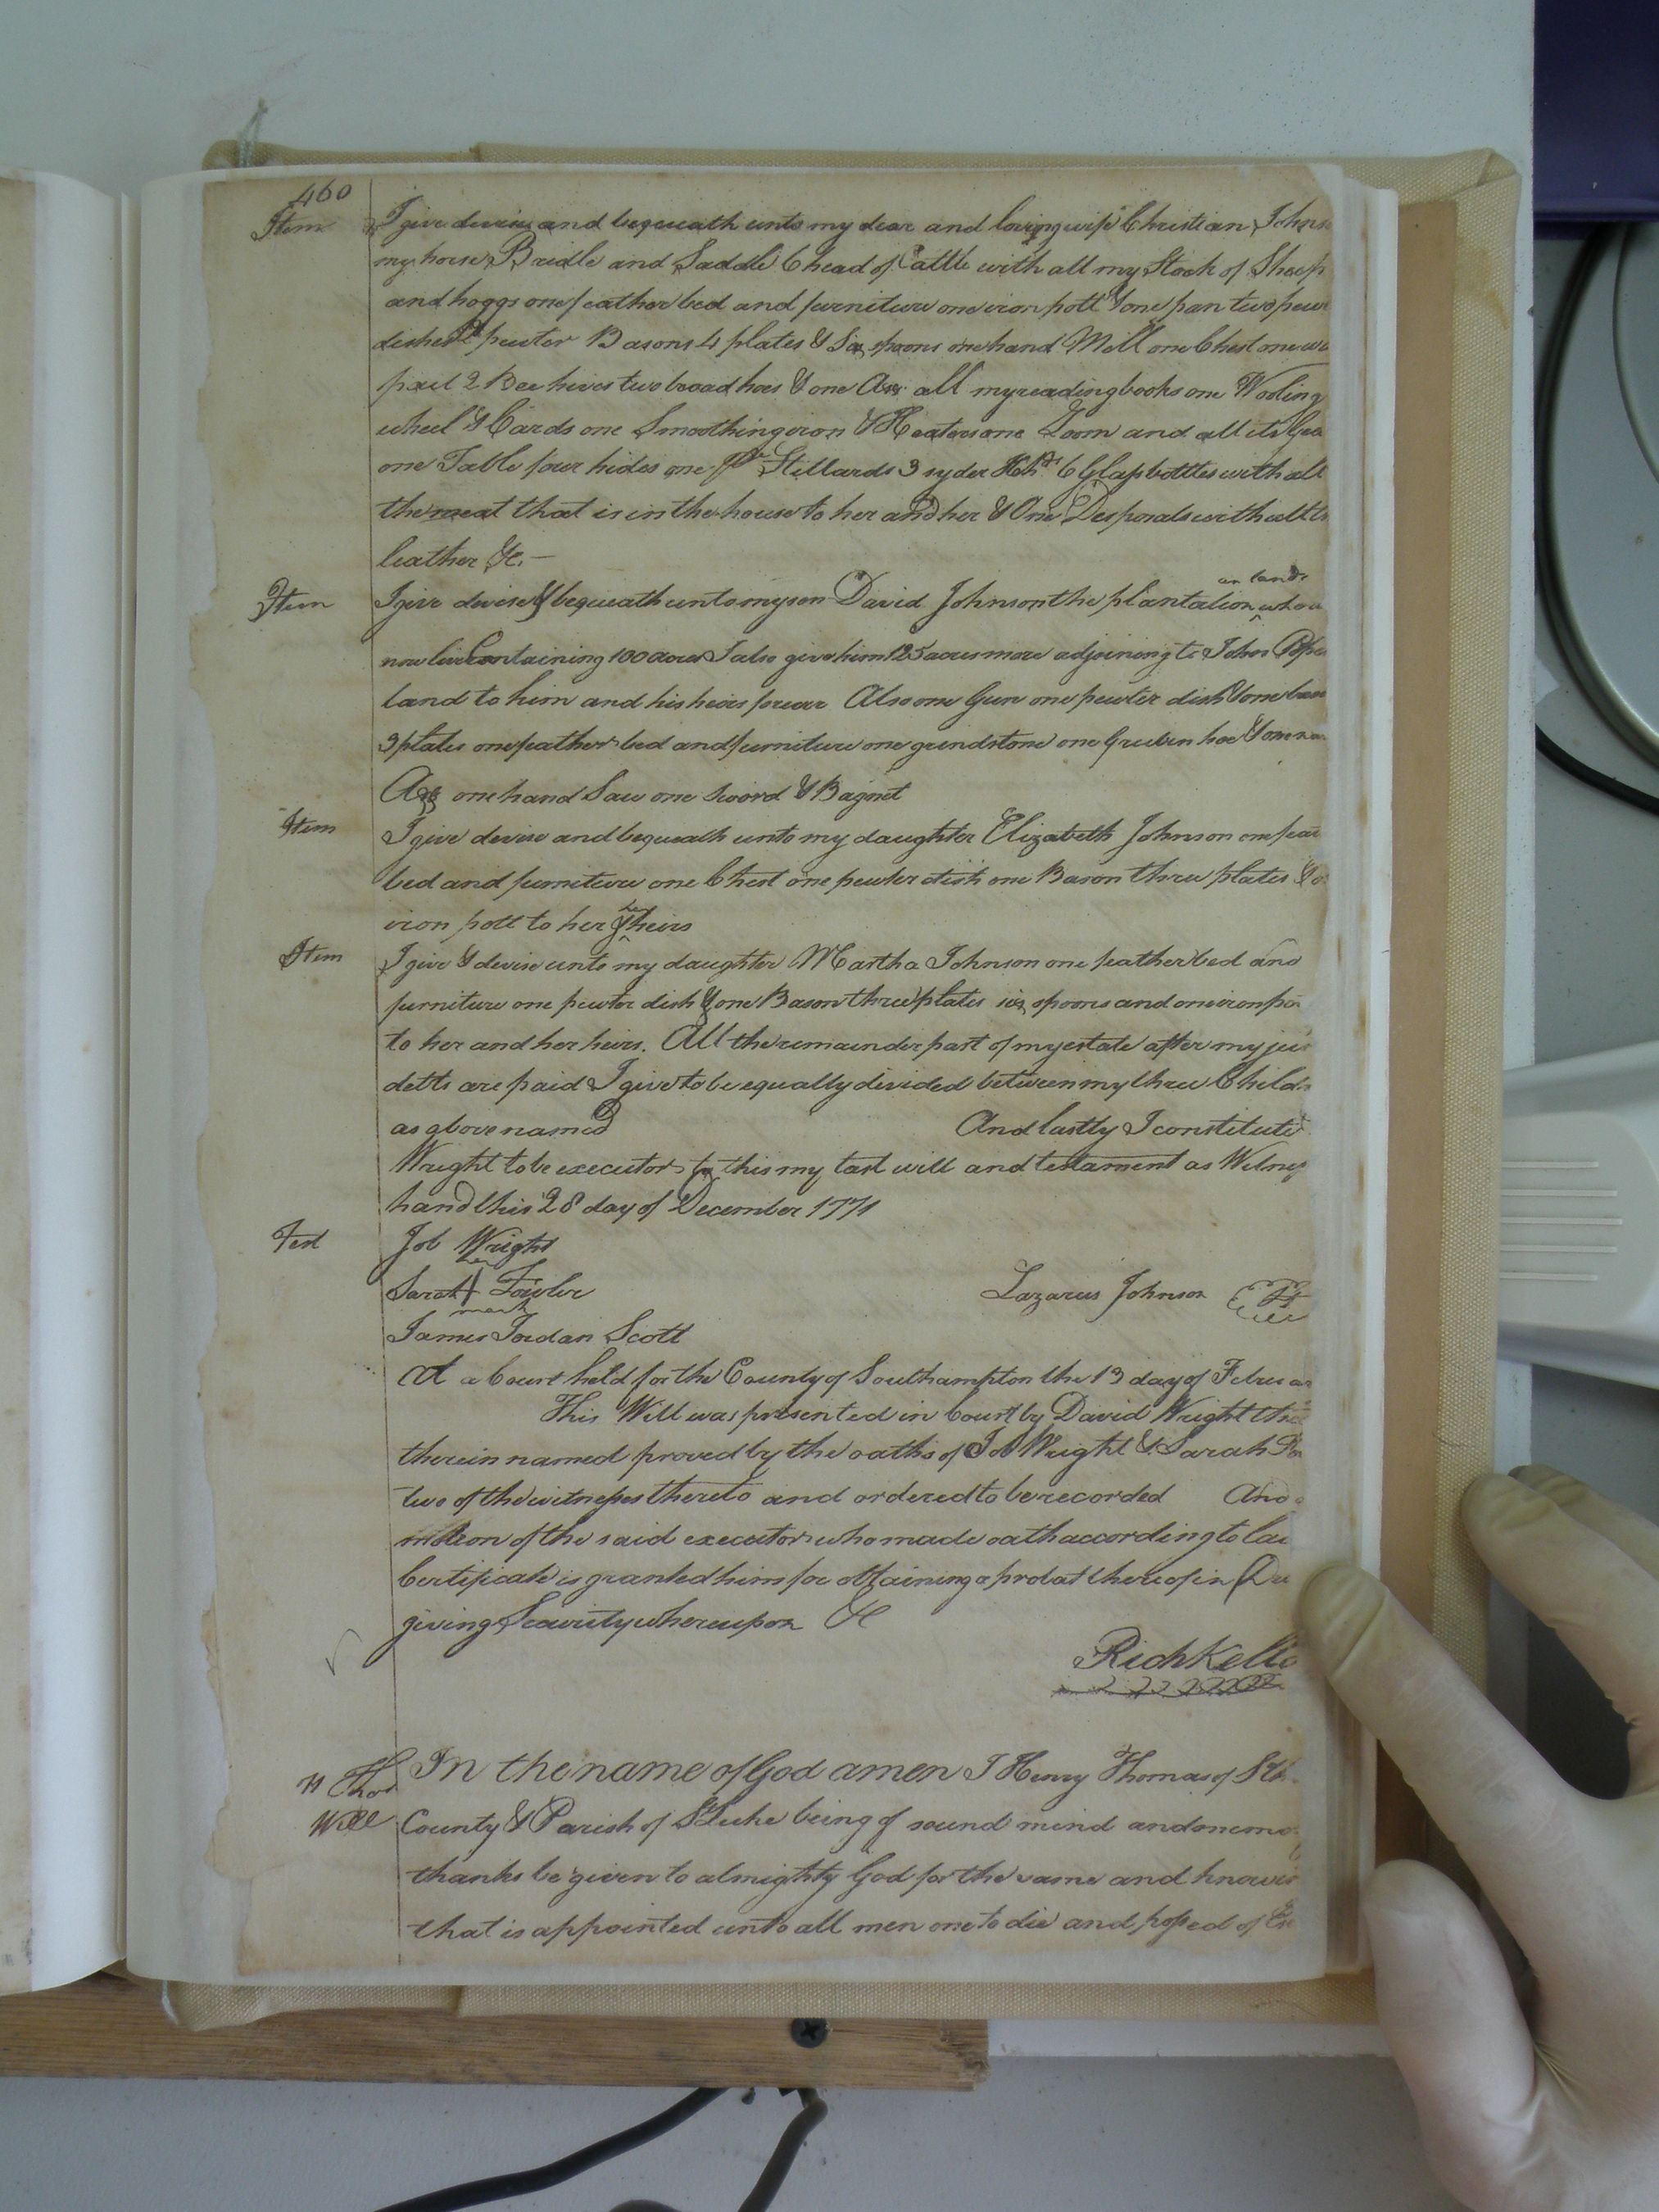 460
Item I give devise and bequeath unto my dear and loving wife Christian Johns
my horse Bridle and Saddle 6 head of Cattle with all my Stock of Sheep
and hoggs one feather bed and furniture one iron pott & one pan two pew
dishes pewter Basons 4 plates & Six spoons one hand Mill one Chest one
pail 2 Bee hives two broad hoes & one Ax all my reading books one Wooling
wheel & Cards one Smoothing iron & Heaters one Loom and all its Gea
one Table four hides one pr Stillards 3 syder Hhds 6 Glass bottles with all
the meat that is in the house to her and her & One Desposals with all th
leather &c. —
an lands
Item I give devise & bequeath unto my son David Johnson the plantation
now live Containing 100 acres I also give him 125 acres more adjoining to John Pope
land to him and his heirs forever Also one Gun one pewter dish & one bason
3 plates one feather bed and furniture one grindstone one Gruben hoe & one
Ax one hand Saw one Sword & Bagnet
Item I give devise and bequeath unto my daughter Elizabeth Johnson one fea
bed and furniture one Chest one pewter dish one Bason three plates & o
iron pott to her & her heirs
Item I give & devise unto my daughter Martha Johnson one feather bed and
furniture one pewter dish & one Bason three plates six spoons and one iron po
to her and her heirs. All the remainder part of my estate after my jus
detts are paid I give to be equally divided between my three Child
as above named And lastly I constitute
Wright to be executor to this my last will and testament as Witness
hand this 28 day of December 1771
Test Job Wright
her
Sarah + Fowler Lazarus Johnson
mark
James Jordan Scott
At a Court held for the County of Southampton the 13 day of Februa
This Will was presented in Court by David Wright the
therein named proved by the oaths of Job Wright & Sarah Fo
two of the witnesses thereto and ordered to be recorded And
motion of the said executor who made oath according to law
Certificate is granted him for obtaining a probat thereof in Du
giving Security whereupon &c
Rich Kello
H Thos In the name of God amen I Henry Thomas of Sth
Will County & Parish of St Luke being of sound mind and memo
thanks be given to almighty God for the same and knowi
that is appointed unto all men one to die and possed of